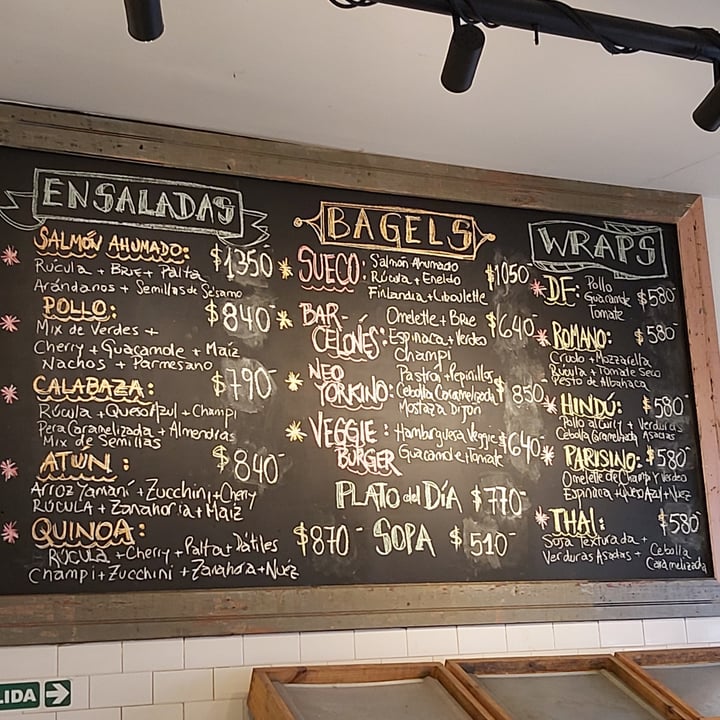 ENSALADAS
SALMÓN AHUMADO: $1350
Rúcula + Brie + Palta
Arándanos + Semillas de Sésamo
POLLO: $840
Mix de Verdes +
Cherry + Guacamole + Maíz
Nachos + Parmesano
CALABAZA: $790
Rúcula + Queso Azul + Champi
Pera Caramelizada + Almendras
Mix de Semillas
ATÚN: $840
Arroz Yamaní + Zucchini + Cherry
RÚCULA + Zanahoria + Maíz
QUINOA: $870
RÚCULA + Cherry + Palta + Dátiles
Champi + Zucchini + Zanahora + Nuéz
BAGELS
SUECO: Salmón Ahumado $1050
Rúcula + Eneldo
Finlandia + Ciboulette
BAR- Omelette + Brie $640
CELONÉS: Espinaca + Verdeo
Champi
NEO Pastrón + Pepinillos
YORKINO: Cebolla Caramelizada $850
Mostaza Dijon
VEGGIE: Hamburguesa Veggie $640
BURGER Guacamole + Tomate
PLATO del DÍA $770
SOPA $510
WRAPS
DF: Pollo $580
Guacamole
Tomate
ROMANO: $580
Crudo + Mozzarella
Rúcula + Tomate Seco
Pesto de Albahaca
HINDÚ: $580
Pollo al Curry + Verduras
Cebolla Caramelizada Asadas
PARISINO: $580
Omelette de Champi y Verdeo
Espinaca + Queso Azul + Nuez
THAI: $580
Soja Texturada +
Verduras Asadas + Cebolla
Caramelizada
LIDA